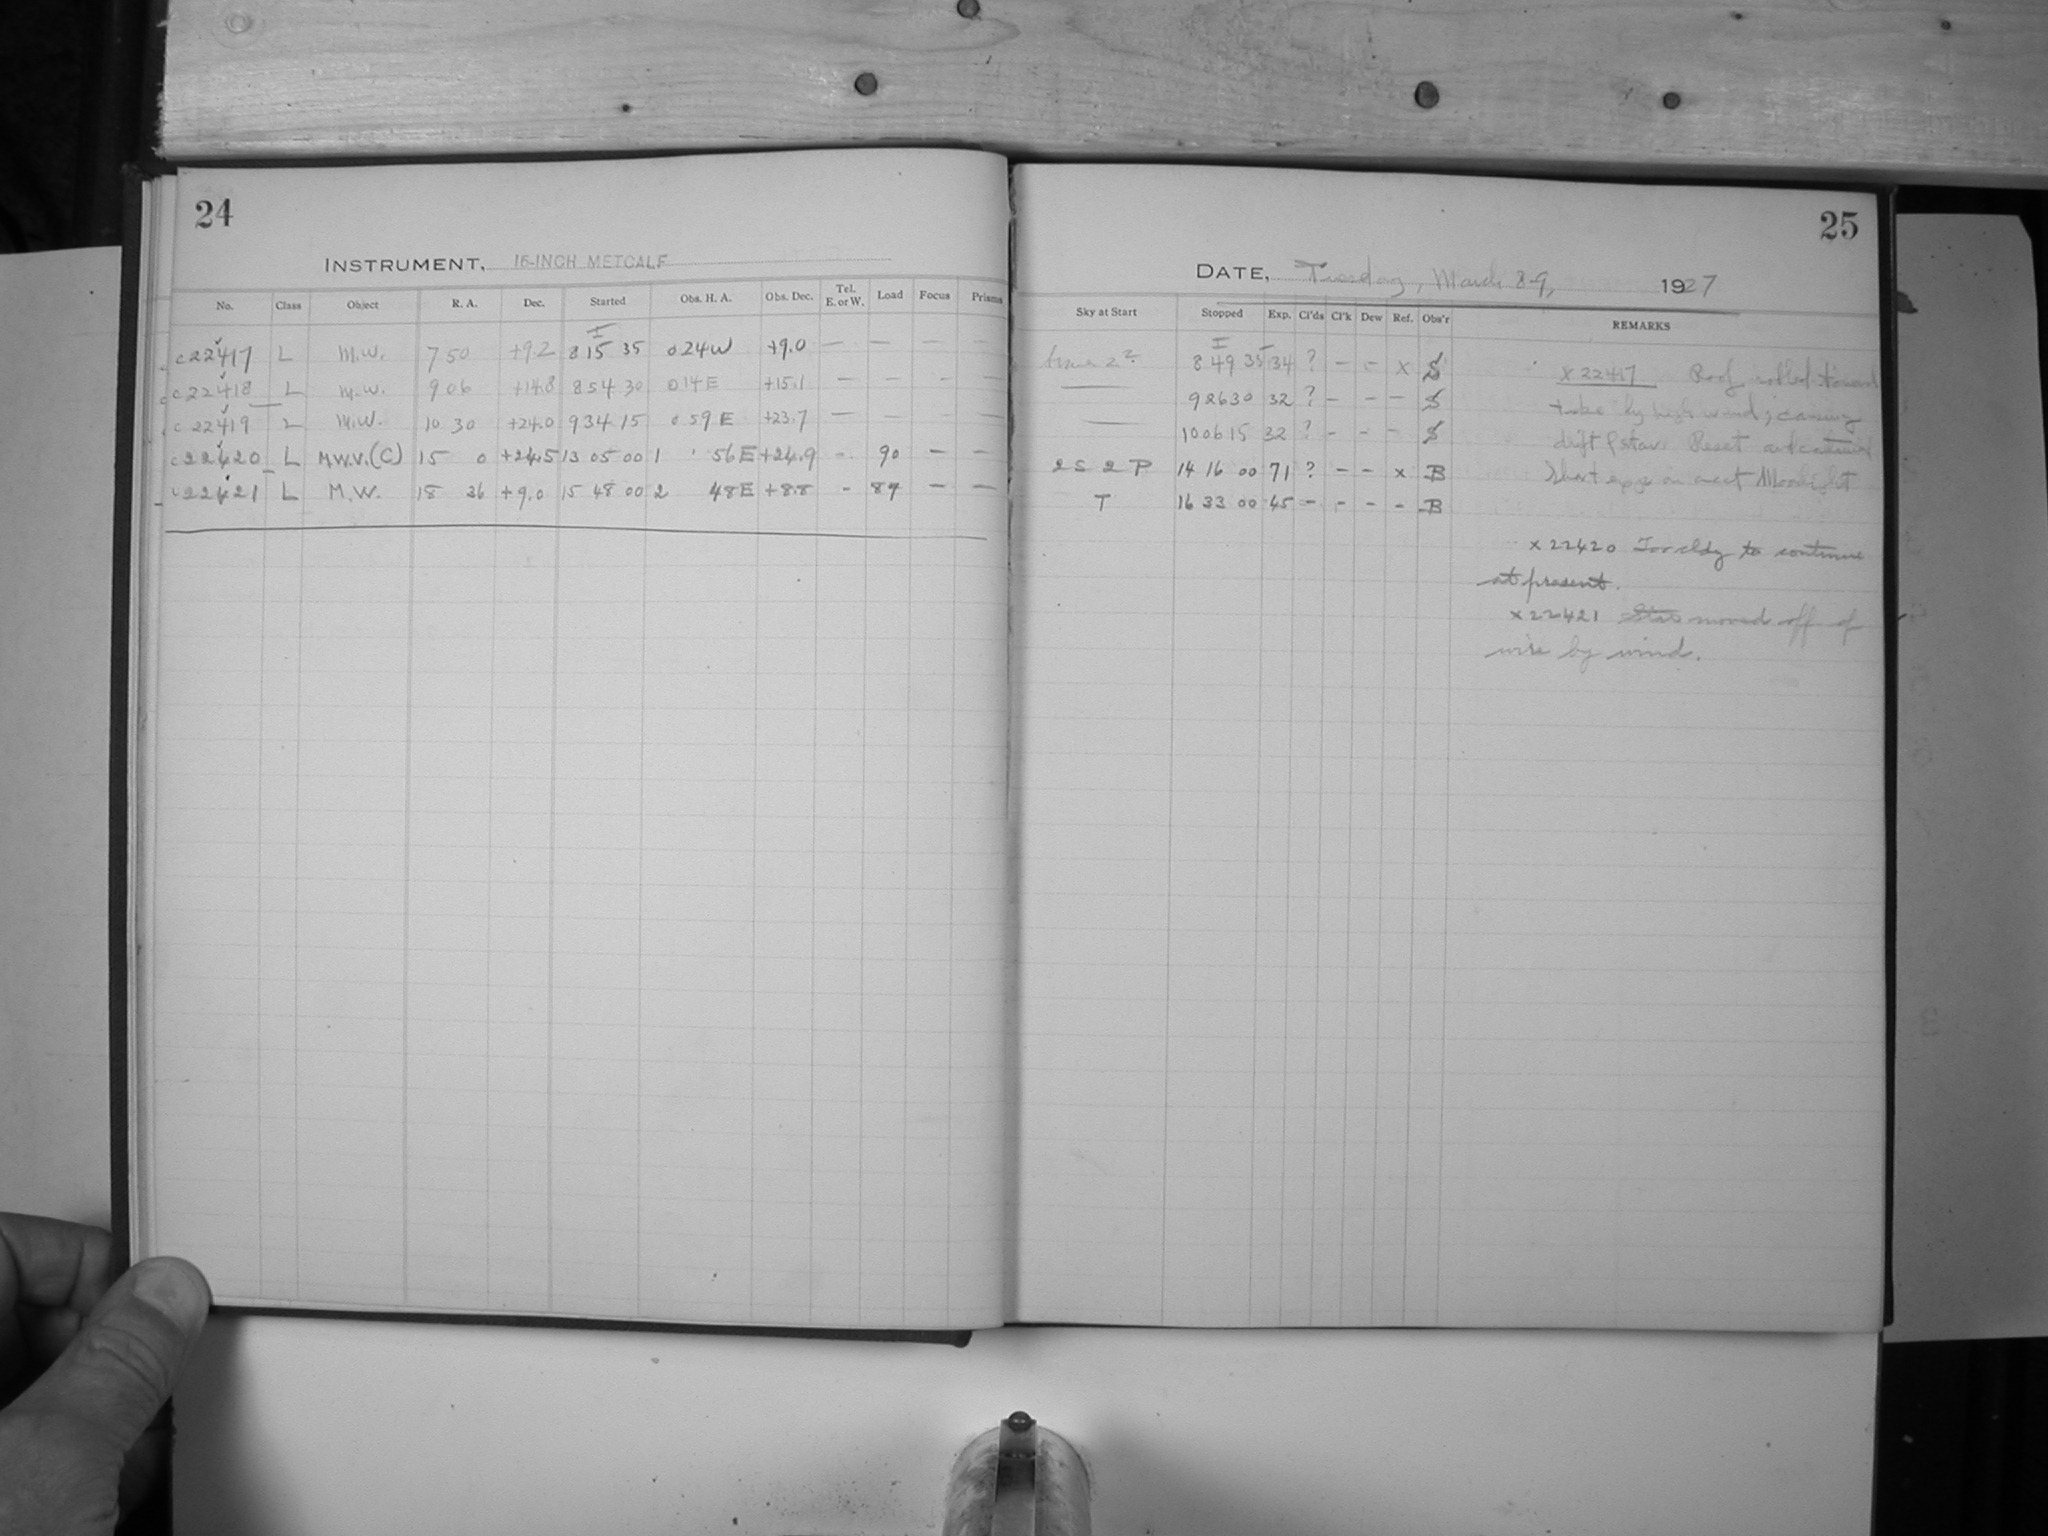 24
INSTRUMENT, 16-INCH METCALF
No. Class Object R. A. Dec. Started Obs. H. A. Obs. Dec. Tel. E. or W. Load Focus Prisms
I
c22417 L M.W. 7 50 +9.2 8 15 35 0 24 W +9.0 — — — —
c22418 L M.W. 9 06 +14.8 8 54 30 0 14 E +15.1 — — - —
c22419 L M.W. 10 30 +24.0 9 34 15 0 59 E +23.7 — — — —
c22420 L M.W.V.(C) 15 0 +24.5 13 05 00 1 56 E +24.9 - 90 — —
c22421 L M.W. 18 36 +9.0 15 48 00 2 48 E +8.8 - 87 — —
25
DATE, Tuesday, March 8-9, 1927
Sky at Start Stopped Exp. Cl'ds Cl'k Dew Ref. Obs'r REMARKS
I
8 49 35 34 ? - - x S x 22417 Roof rolled toward
— 9 26 30 32 ? - - - S tube by high wind; causing
— 10 06 15 32 ? - - - S drift of stars. Reset and continued
2 S 2 P 14 16 00 71 ? - - x B Short exps on acct Moonlight
T 16 33 00 45 - - - - B
x 22420 Too cldy to continue
at present.
x 22421 Star moved off of
wire by wind.